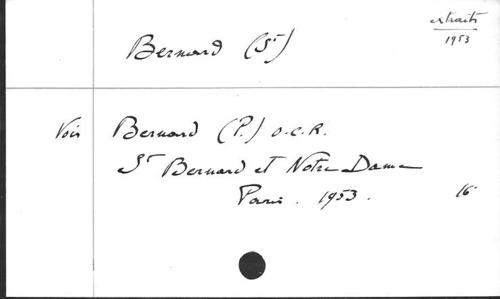 extraits
1953
Bernard (St)
Voir Bernard (P.) O.C.R.
St Bernard et Notre Dame
Paris. 1953. 16